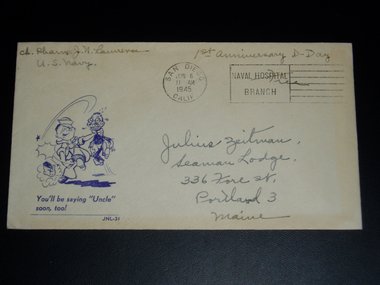 Ch. Pharm. J. N. Lawrence
U.S. Navy.
1st Anniversary D-Day
SAN DIEGO
JUN 6
11 AM
1945
CALIF.
NAVAL HOSPITAL
BRANCH
Free
Julius Zeitman,
Seaman Lodge.
336 Fore St.
Portland 3
Maine
You'll be saying "Uncle"
soon, too!
JNL-31